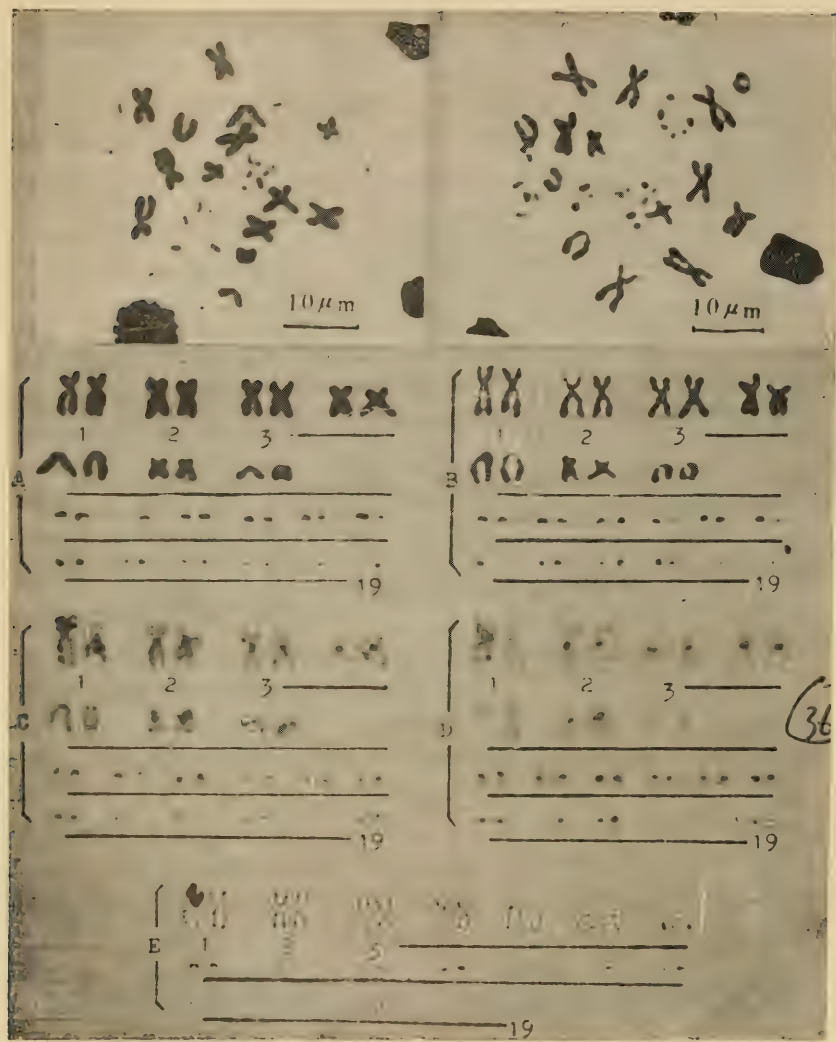 10 μm
10 μm
A
1 2 3
19
B
1 2 3
19
C
1 2 3
19
D
1 2 3
19
(36
E
1
19